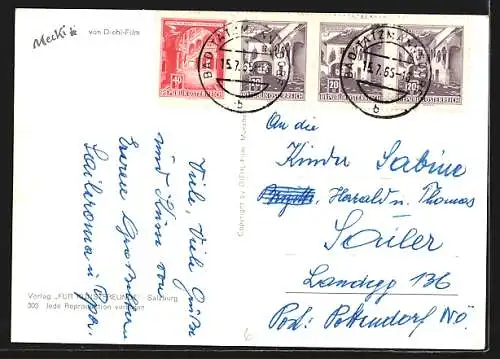 Mecki
von Diehl-Film
BAD TATZMANNSDORF
15.7.65
b
40
REPUBLIK ÖSTERREICH
20
REPUBLIK ÖSTERREICH
20
REPUBLIK ÖSTERREICH
20
REPUBLIK ÖSTERREICH
BAD TATZMANNSDORF
15.7.65
b
An die
Kinder Sabine
Harald u. Thomas
Sailer
Landegg 136
Post: Pottendorf NÖ.
Copyright by DIEHL-Film
Viele, viele Grüße
und Küsse von
Euren Großeltern
Saileroma u. Opa.
Verlag „FÜR KUNSTFREUNDE" Salzburg
303 Jede Reproduktion verboten